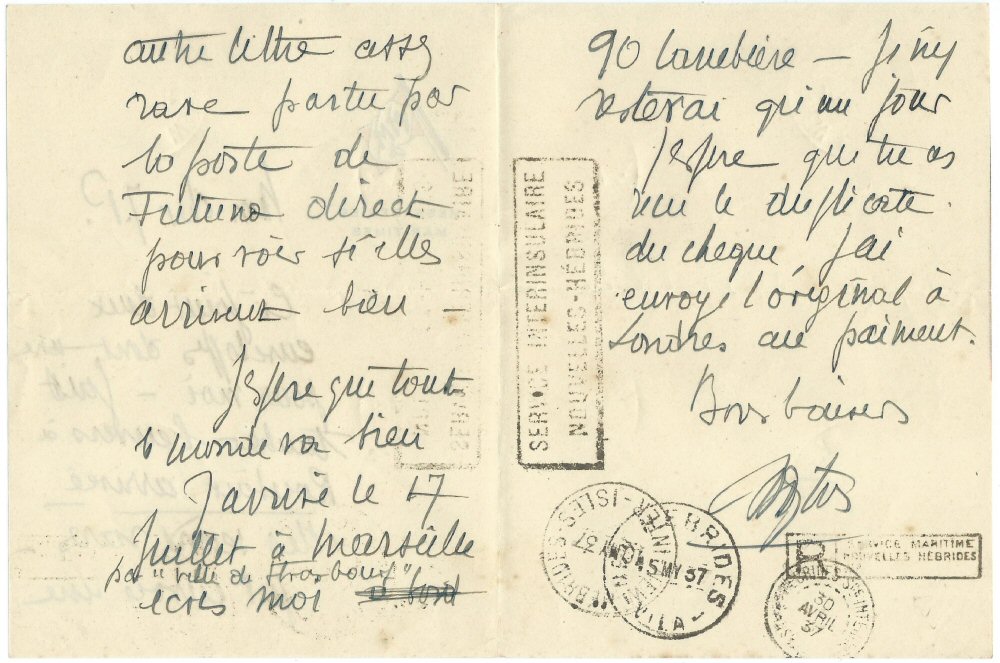 autre lettre assez
rare partie par
la poste de
Futuna direct
pour voir si elles
arrivent bien -
J'espère que tout
le monde va bien
J'arrive le 17
Juillet à Marseille
par "ville de Strasbourg"
ecris moi a bord
90 Canebière - Je n'y
resterai qu'un jour
J'espère que tu as
reçu le duplicata
du cheque J'ai
envoyé l'original à
Londres au paiment.
Bons baisers
SERVICE INTERINSULAIRE
NOUVELLES-HÉBRIDES
HEBRIDES-ISLES-INTER
37
HEBRIDES
VILA
5 MY 37
SERVICE MARITIME
NOUVELLES HÉBRIDES
30
AVRIL
37